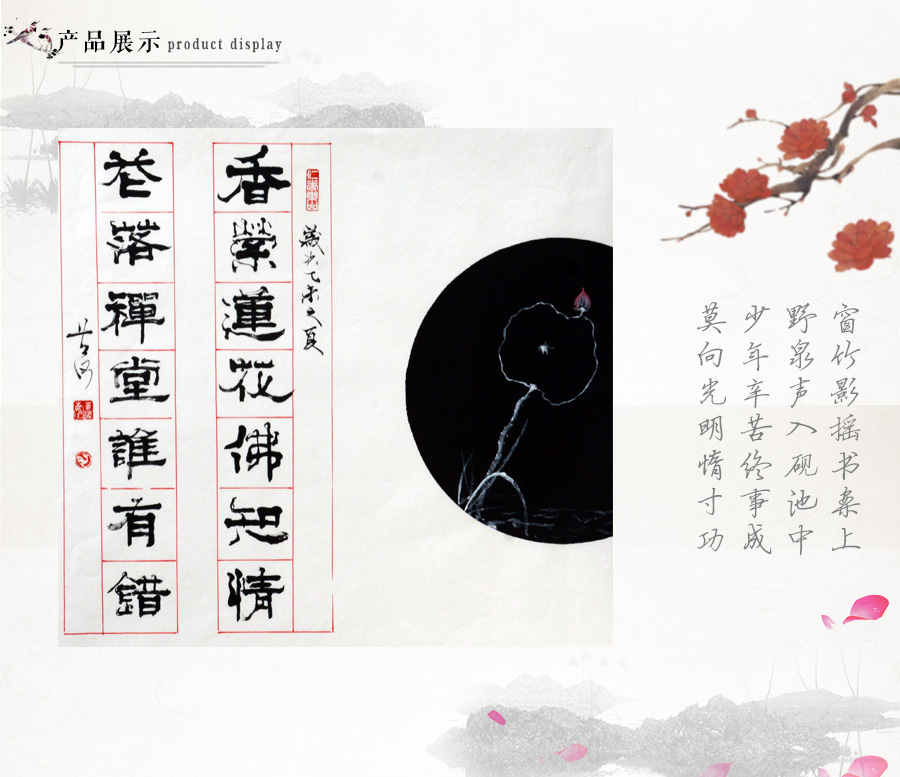 产品展示 product display
香縈蓮花佛知情
花落禪堂誰有錯
歲次乙未之夏
窗竹影摇书案上
野泉声入砚池中
少年辛苦终事成
莫向光明惰寸功